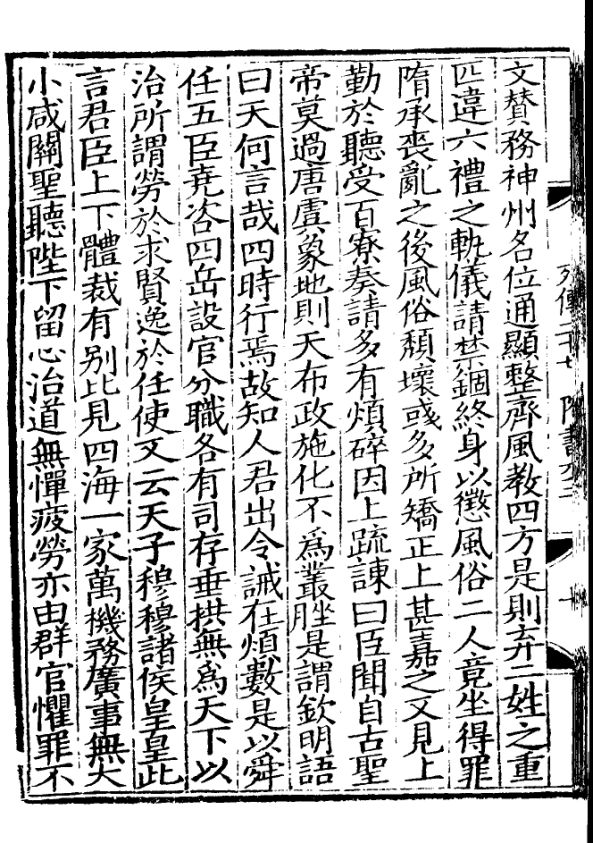 文贊務神州名位通顯整齊風教四方是則弃二姓之重
匹違六禮之軌儀請禁錮終身以懲風俗二人竟坐得罪
隋承喪亂之後風俗頹壞彧多所矯正上甚嘉之又見上
勤於聽受百寮奏請多有煩碎因上疏諫曰臣聞自古聖
帝莫過唐虞象地則天布政施化不為叢脞是謂欽明語
曰天何言哉四時行焉故知人君出令誡在煩數是以舜
任五臣堯咨四岳設官分職各有司存垂拱無為天下以
治所謂勞於求賢逸於任使又云天子穆穆諸侯皇皇此
言君臣上下體裁有别比見四海一家萬機務廣事無大
小咸關聖聽陛下留心治道無憚疲勞亦由群官懼罪不